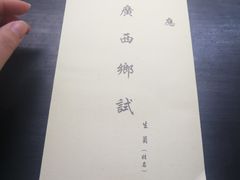 應
廣西鄉試
生員（姓名）